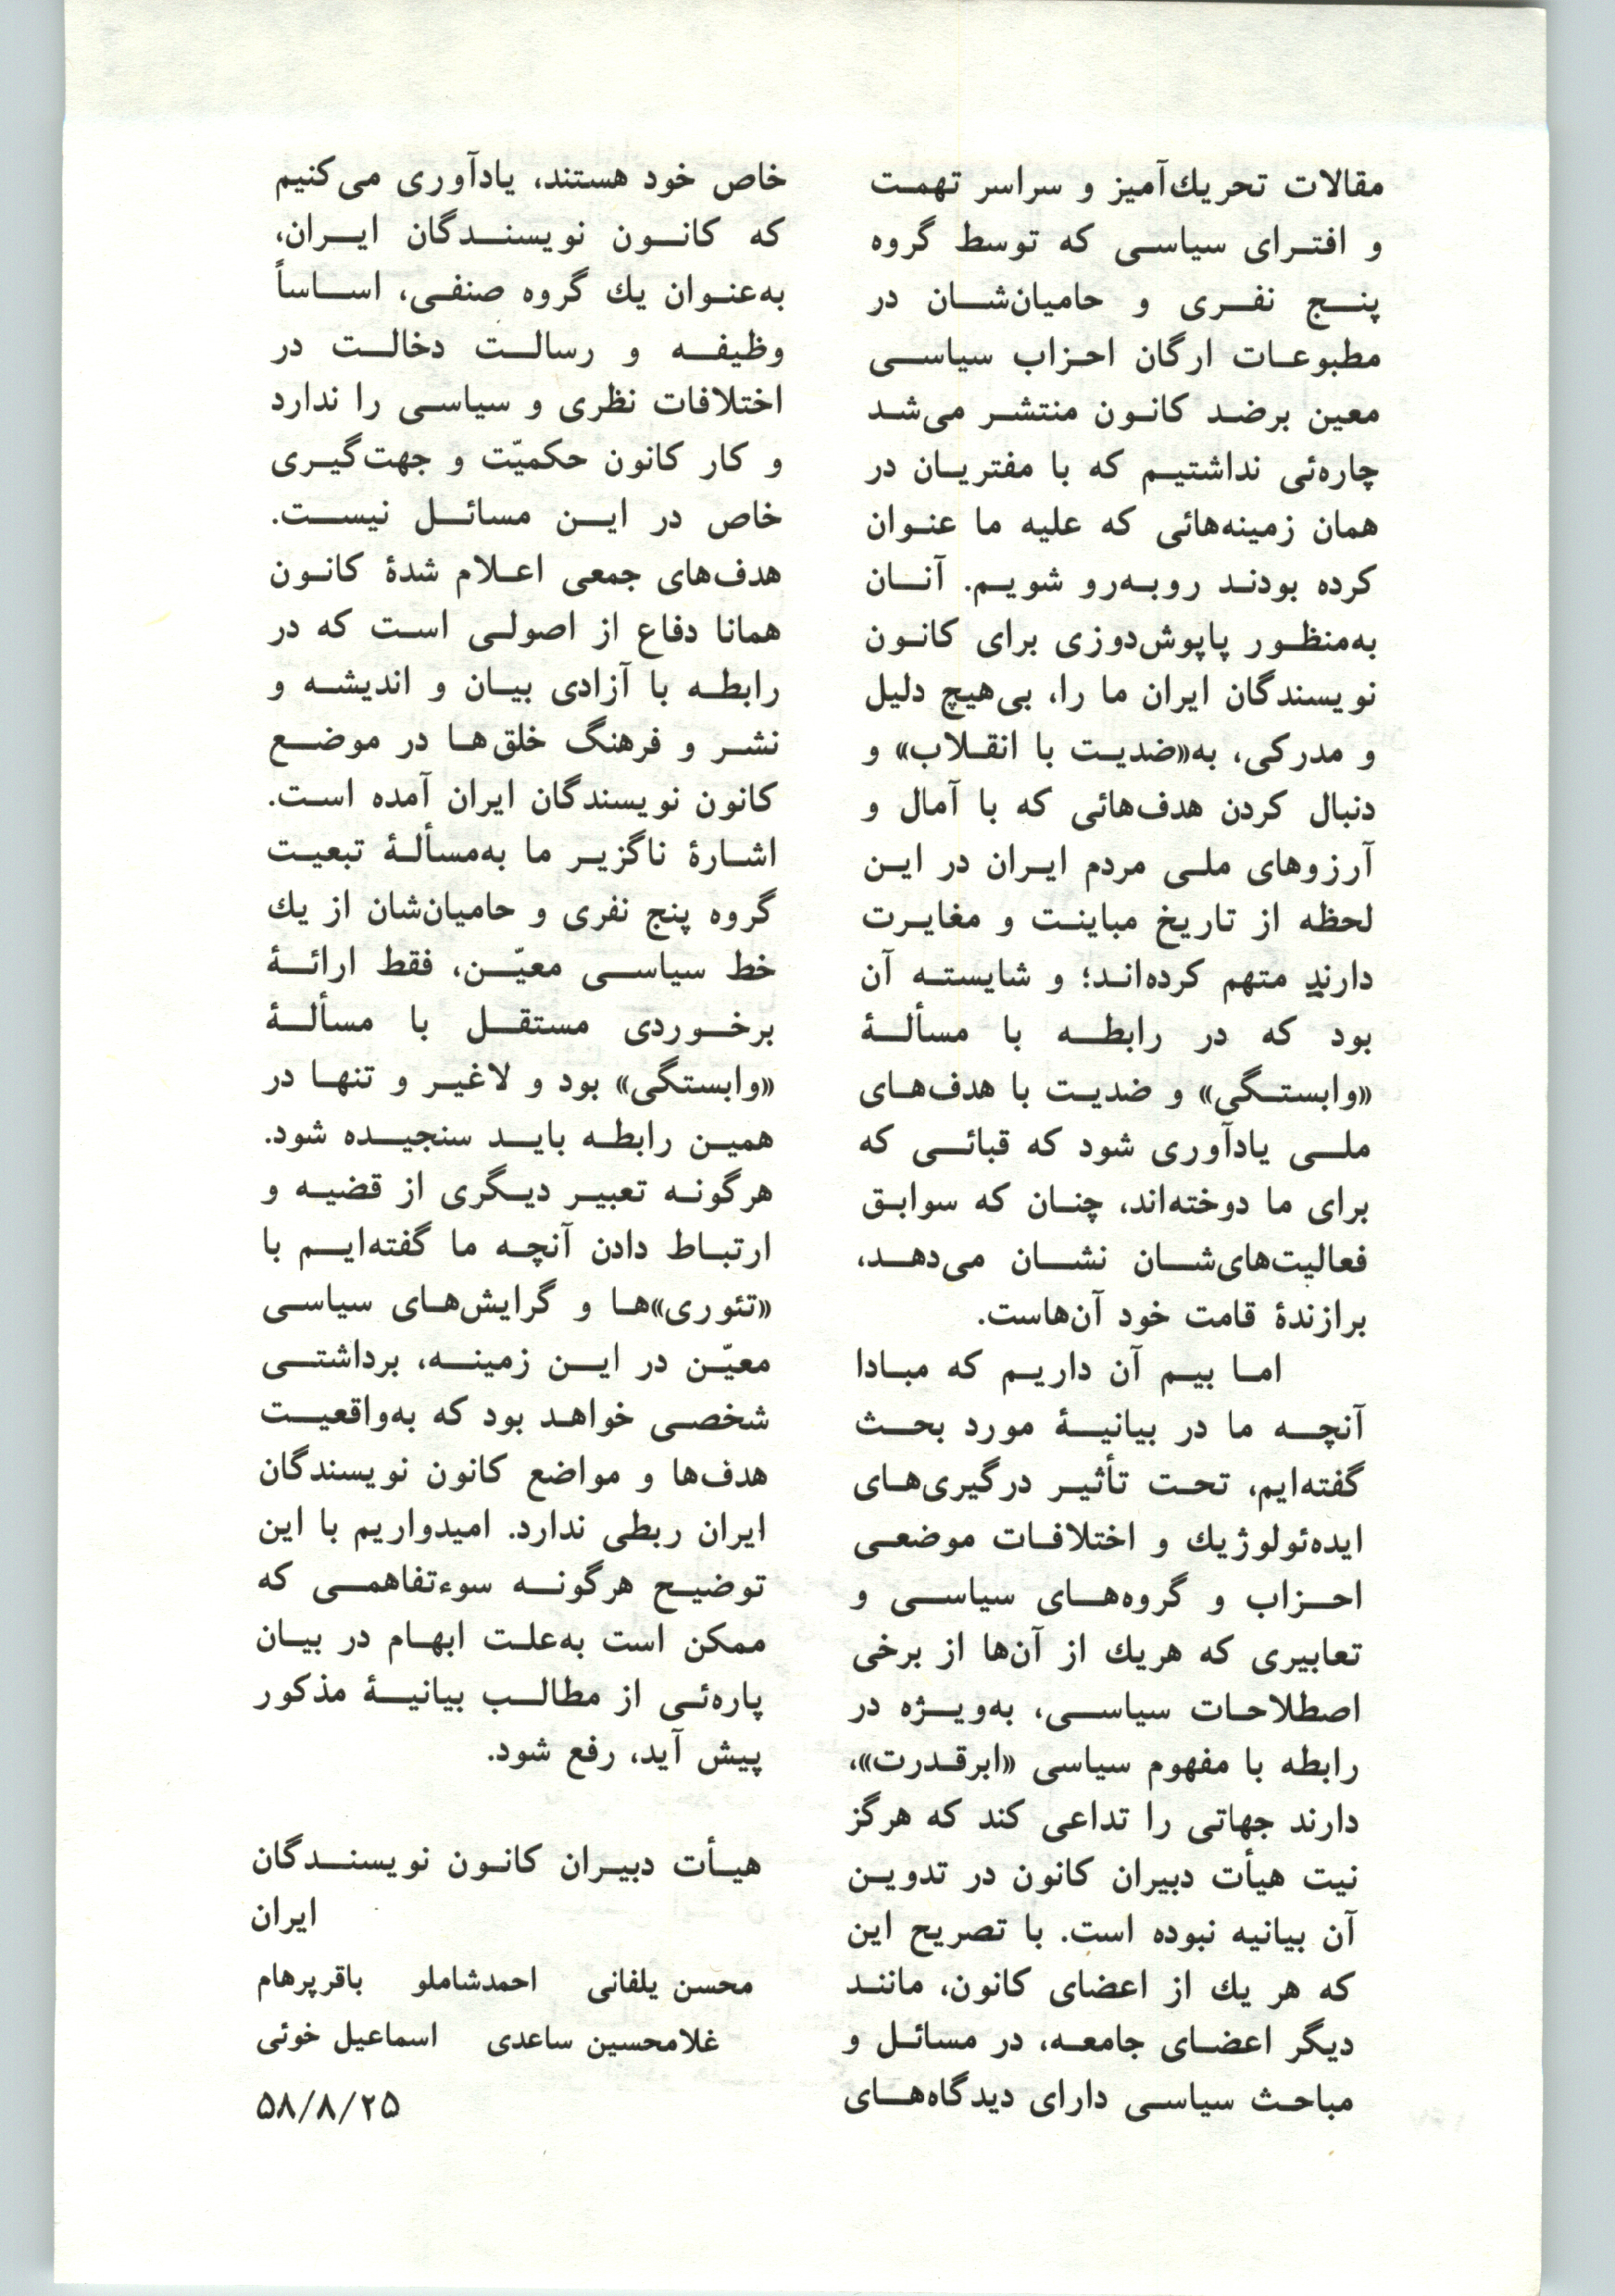 مقالات تحریك‌آمیز و سراسر تهمت
و افترای سیاسی که توسط گروه
پنج نفری و حامیان‌شان در
مطبوعات ارگان احزاب سیاسی
معین برضد کانون منتشر می‌شد
چاره‌ئی نداشتیم که با مفتریان در
همان زمینه‌هائی که علیه ما عنوان
کرده بودند روبه‌رو شویم. آنان
به‌منظور پاپوش‌دوزی برای کانون
نویسندگان ایران ما را، بی‌هیچ دلیل
و مدرکی، به«ضدیت با انقلاب» و
دنبال کردن هدف‌هائی که با آمال و
آرزوهای ملی مردم ایران در این
لحظه از تاریخ مباینت و مغایرت
دارند متهم کرده‌اند؛ و شایسته آن
بود که در رابطه با مسألهٔ
«وابستگی» و ضدیت با هدف‌های
ملی یادآوری شود که قبائی که
برای ما دوخته‌اند، چنان که سوابق
فعالیت‌های‌شان نشان می‌دهد،
برازندهٔ قامت خود آن‌هاست.
اما بیم آن داریم که مبادا
آنچه ما در بیانیهٔ مورد بحث
گفته‌ایم، تحت تأثیر درگیری‌های
ایده‌ئولوژیك و اختلافات موضعی
احزاب و گروه‌های سیاسی و
تعابیری که هریك از آن‌ها از برخی
اصطلاحات سیاسی، به‌ویژه در
رابطه با مفهوم سیاسی «ابرقدرت»،
دارند جهاتی را تداعی کند که هرگز
نیت هیأت دبیران کانون در تدوین
آن بیانیه نبوده است. با تصریح این
که هر یك از اعضای کانون، مانند
دیگر اعضای جامعه، در مسائل و
مباحث سیاسی دارای دیدگاه‌های
خاص خود هستند، یادآوری می‌کنیم
که کانون نویسندگان ایران،
به‌عنوان یك گروه صنفی، اساساً
وظیفه و رسالت دخالت در
اختلافات نظری و سیاسی را ندارد
و کار کانون حکمیّت و جهت‌گیری
خاص در این مسائل نیست.
هدف‌های جمعی اعلام شدهٔ کانون
همانا دفاع از اصولی است که در
رابطه با آزادی بیان و اندیشه و
نشر و فرهنگ خلق‌ها در موضع
کانون نویسندگان ایران آمده است.
اشارهٔ ناگزیر ما به‌مسألهٔ تبعیت
گروه پنج نفری و حامیان‌شان از یك
خط سیاسی معیّن، فقط ارائهٔ
برخوردی مستقل با مسألهٔ
«وابستگی» بود و لاغیر و تنها در
همین رابطه باید سنجیده شود.
هرگونه تعبیر دیگری از قضیه و
ارتباط دادن آنچه ما گفته‌ایم با
«تئوری»ها و گرایش‌های سیاسی
معیّن در این زمینه، برداشتی
شخصی خواهد بود که به‌واقعیت
هدف‌ها و مواضع کانون نویسندگان
ایران ربطی ندارد. امیدواریم با این
توضیح هرگونه سوءتفاهمی که
ممکن است به‌علت ابهام در بیان
پاره‌ئی از مطالب بیانیهٔ مذکور
پیش آید، رفع شود.
هیأت دبیران کانون نویسندگان
ایران
محسن یلفانی احمدشاملو باقرپرهام
غلامحسین ساعدی اسماعیل خوئی
۵۸/۸/۲۵